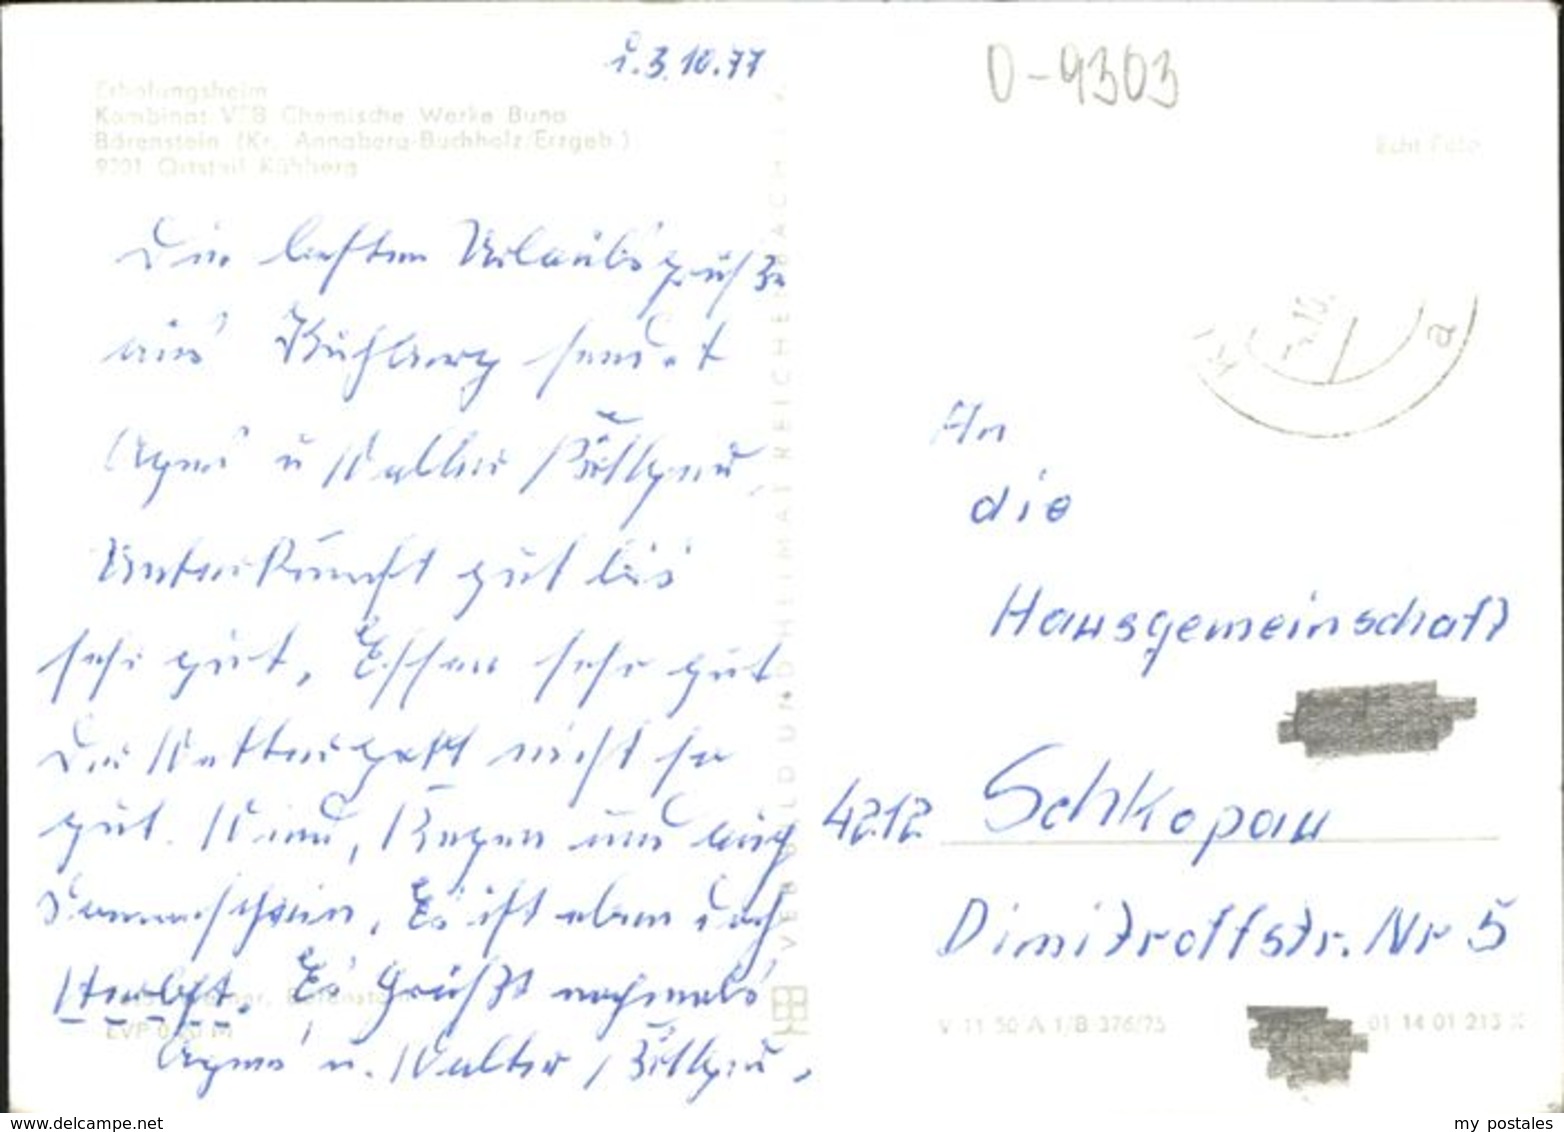 d. 3.10.77
Erholungsheim
Kombinat VEB Chemische Werke Buna
Bärenstein (Kr. Annaberg-Buchholz/Erzgeb.)
9301 Ortsteil Kühberg
Die besten Urlaubsgrüße
aus Kühberg sendet
Agnes u Walter
Unterkunft gut bis
sehr gut, Essen sehr gut
Das Wetter nicht so
gut. Wind, Regen und auch
Sonnenschein, Es ist eben doch
Herbst. Es Grüßt nochmals
Agnes u. Walter
EVP
VEB BILD UND HEIMAT REICHENBACH
0-9303
Echt Foto
10.
a
An
die
Hausgemeinschaft
4212 Schkopau
Dimitroffstr. Nr 5
V 11 50 A 1/B 376/75
01 14 01 213
www.delcampe.net
my postales